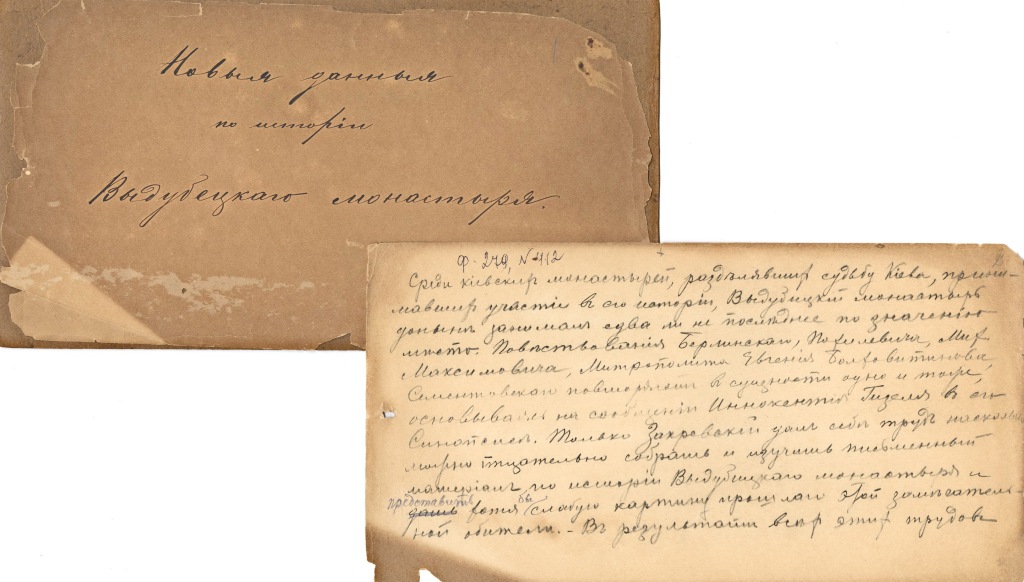 Новыя данныя
по исторіи
Выдубецкаго монастыря.
Ф. 279, N 412
Среди кіевскихъ монастырей, раздѣлявшихъ судьбу Кіева, прини-
мавшихъ участіе въ его исторіи, Выдубицкій монастырь
донынѣ занималъ едва ли не послѣднее по значенію
мѣсто. Повѣствованія Берлинскаго, Похилевича, Мих.
Максимовича, Митрополита Евгенія Болховитинова,
Сементовскаго повторяли въ сущности одно и тоже,
основываясь на сообщеніи Иннокентія Гизеля въ его
Синопсисѣ. Только Закревскій далъ себѣ трудъ насколько
можно тщательно собрать и изучить письменный
матеріалъ по исторіи Выдубицкаго монастыря и
представить
дать хотя бы слабую картину прошлаго этой замѣчатель-
ной обители. - Въ результатѣ всѣхъ этихъ трудовъ